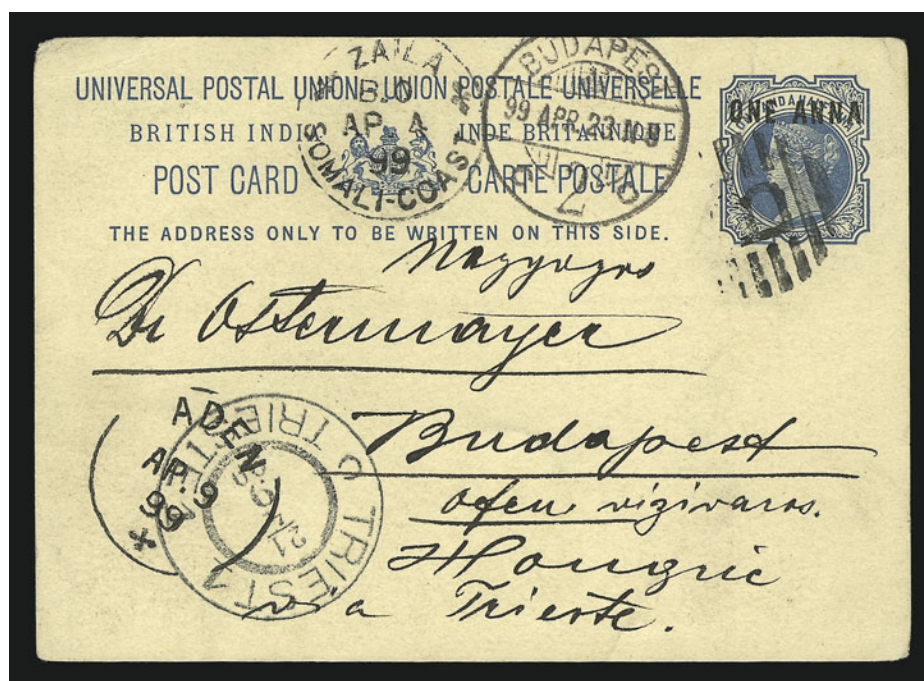 UNIVERSAL POSTAL UNION. UNION POSTALE UNIVERSELLE
BRITISH INDIA INDE BRITANNIQUE
POST CARD CARTE POSTALE
THE ADDRESS ONLY TO BE WRITTEN ON THIS SIDE.
ZAILA
B.O
AP. 4
99
SOMALI-COAST
BUDAPEST
99 APR 23
ONE ANNA
Dr Ostermayer
Budapest
Ofen vizivaros.
Hongrie
via Trieste.
ADEN
AP. 9
99
TRIEST
TRIESTE
21